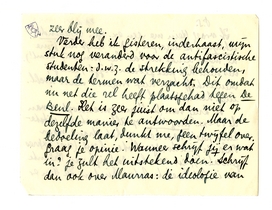 zeer blij mee.
Verder heb ik gisteren, inderhaast, mijn
stuk nog veranderd voor de antifascistische
studenten: d.w.z. de strekking behouden,
maar de termen wat verzacht. Dit omdat
in net die rel heeft plaatsgehad tegen De
Beul. Het is zeer juist om dan niet op
dezelfde manier te antwoorden. Maar de
bedoeling laat, dunkt me, geen twijfel over.
Graag je opinie. Wanneer schrijf jij er wat
in? Je zult het uitstekend doen. Schrijf
dan ook over Maurras: de ideologie van